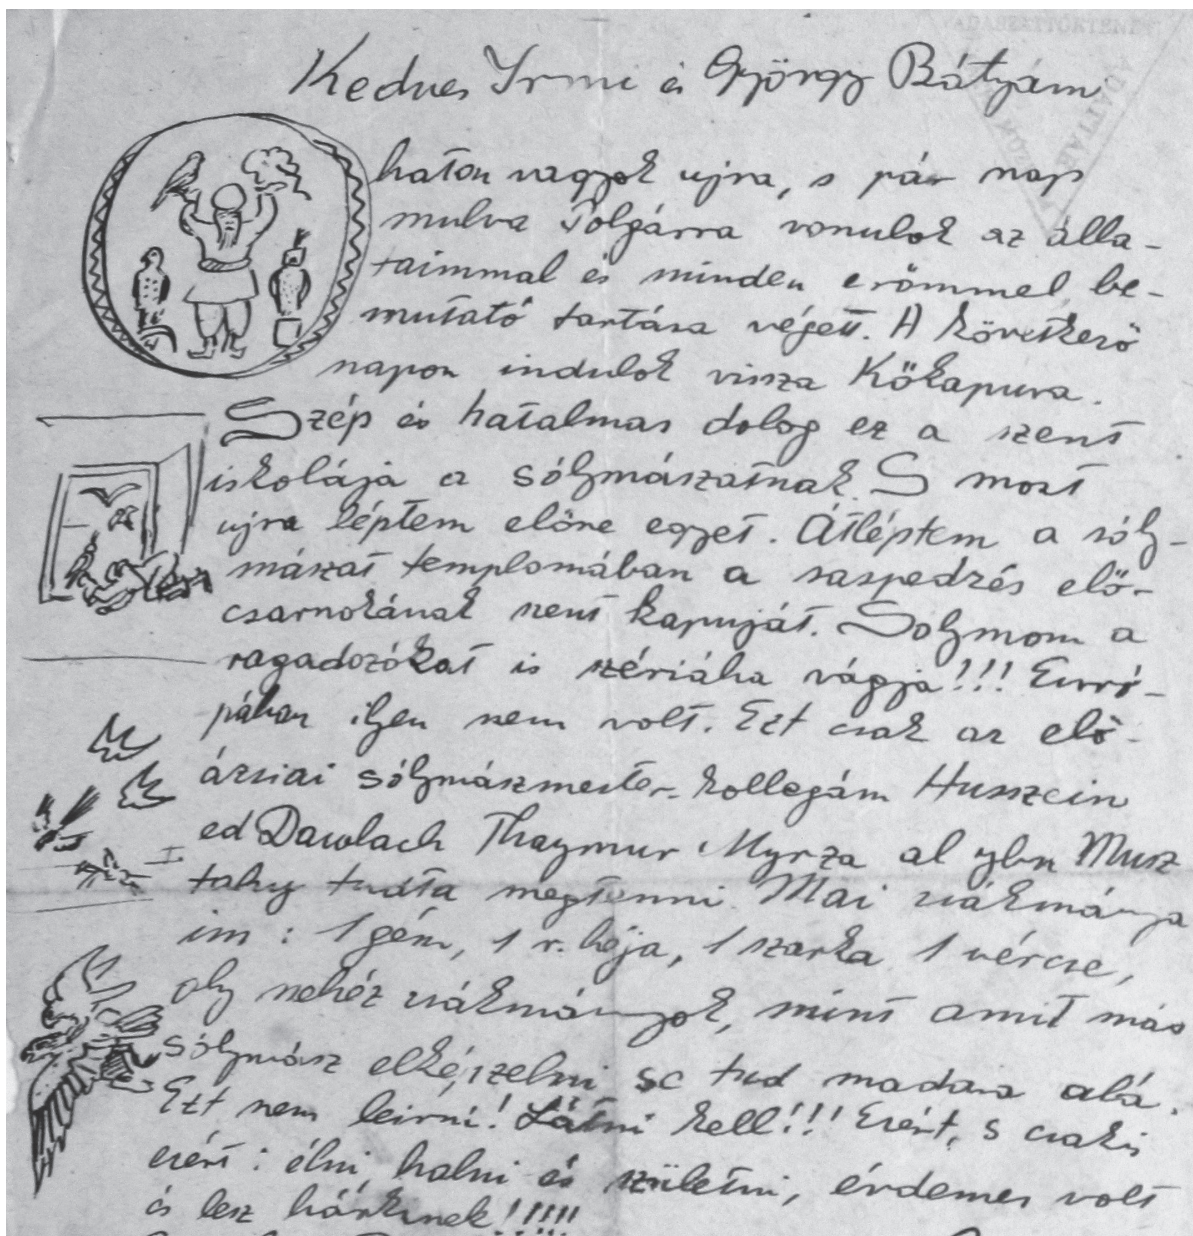 Kedves Irmi és György Bátyám
haton vagyok ujra, s pár nap
mulva Polgárra vonulok az álla-
taimmal és minden erőmmel, be-
mutató tartása végett. A következő
napon indulok vissza Kőkapura.
Szép és hatalmas dolog ez a szent
iskolája a sólymászatnak. S most
ujra léptem előre egyet. Átléptem a sóly-
mászat templomában a saspedzés elő-
csarnokának szent kapuját. Solymom a
ragadozókat is szériába vágja!!! Euró-
pában ilyen nem volt. Ezt csak az elő-
ázsiai sólymászmester-kollegám Husszein
ed Dawlach Thaymur Myrza al ybn Musz
tahy tudta megtenni. Mai zsákmánya
im: 1 gém, 1 r. héja, 1 szarka 1 vércse,
oly nehéz zsákmányok, mint amit más
sólymász elképzelni se tud madara alá.
Ezt nem leirni! Látni kell!!! Ezért, s csakis
ezért: élni, halni és születni, érdemes volt
és lesz bárkinek!!!!!
VADÁSZATTÖRTÉNETI
ADATTÁR